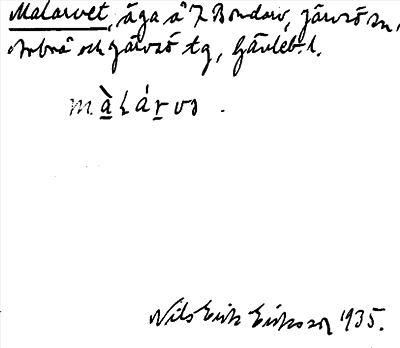 Malarvet, äga å 7 Bondarv, Järvsö sn,
Arbrå och Järvsö tg, Gävleb. l.
màlárvə .
Nils Erik Eriksson 1935.